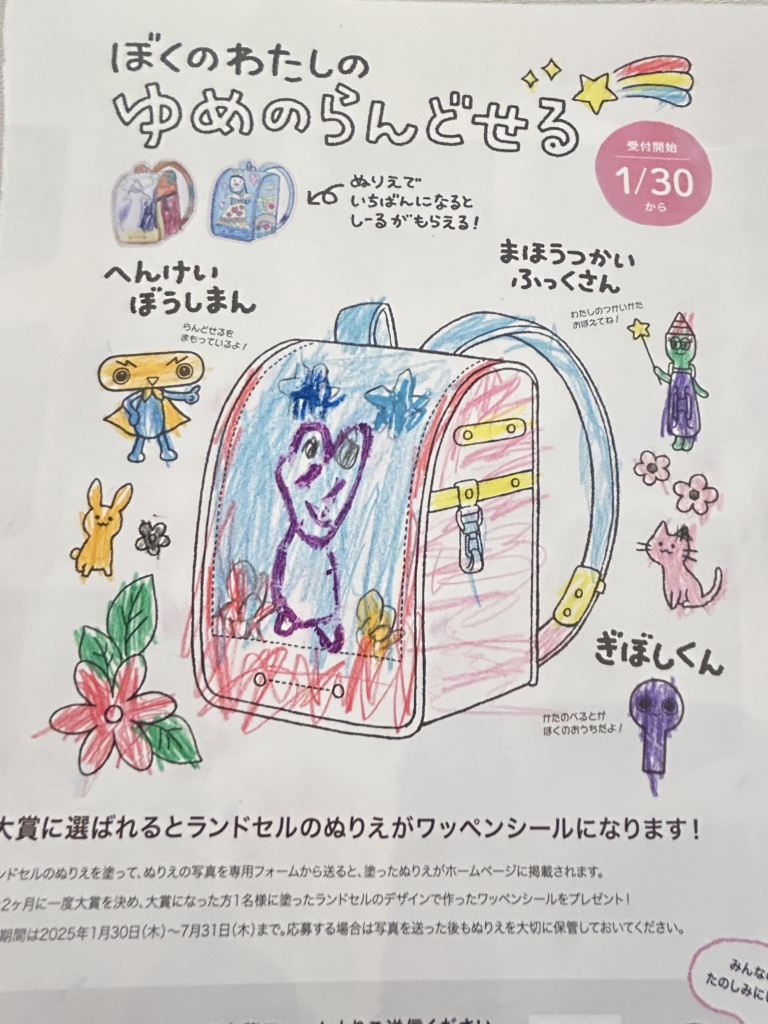 ぼくのわたしの
ゆめのらんどせる
受付開始
1/30
から
ぬりえで
いちばんになると
しーるがもらえる！
へんけい
ぼうしまん
らんどせるを
まもっているよ！
まほうつかい
ふっくさん
わたしのつかいかた
おぼえてね！
ぎぼしくん
かたのべるとが
ぼくのおうちだよ！
大賞に選ばれるとランドセルのぬりえがワッペンシールになります！
ンドセルのぬりえを塗って、ぬりえの写真を専用フォームから送ると、塗ったぬりえがホームページに掲載されます。
2ヶ月に一度大賞を決め、大賞になった方1名様に塗ったランドセルのデザインで作ったワッペンシールをプレゼント！
期間は2025年1月30日(木)～7月31日(木)まで。応募する場合は写真を送った後もぬりえを大切に保管しておいてください。
みんな
たのしみに